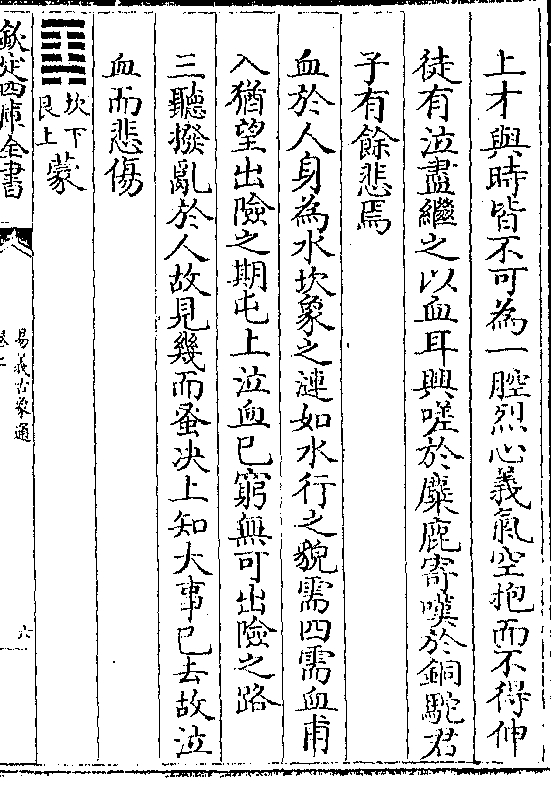 上才與時皆不可為一腔烈心義氣空抱而不得伸
徒有泣盡繼之以血耳興嗟於麋鹿寄嘆於銅駝君
子有餘悲焉
血於人身為水坎象之漣如水行之貌需四需血甫
入猶望出險之期屯上泣血已窮無可出險之路
三聽撥亂於人故見幾而蚤決上知大事已去故泣
血而悲傷
坎下
艮上
蒙
欽定四庫全書
易義古象通
六